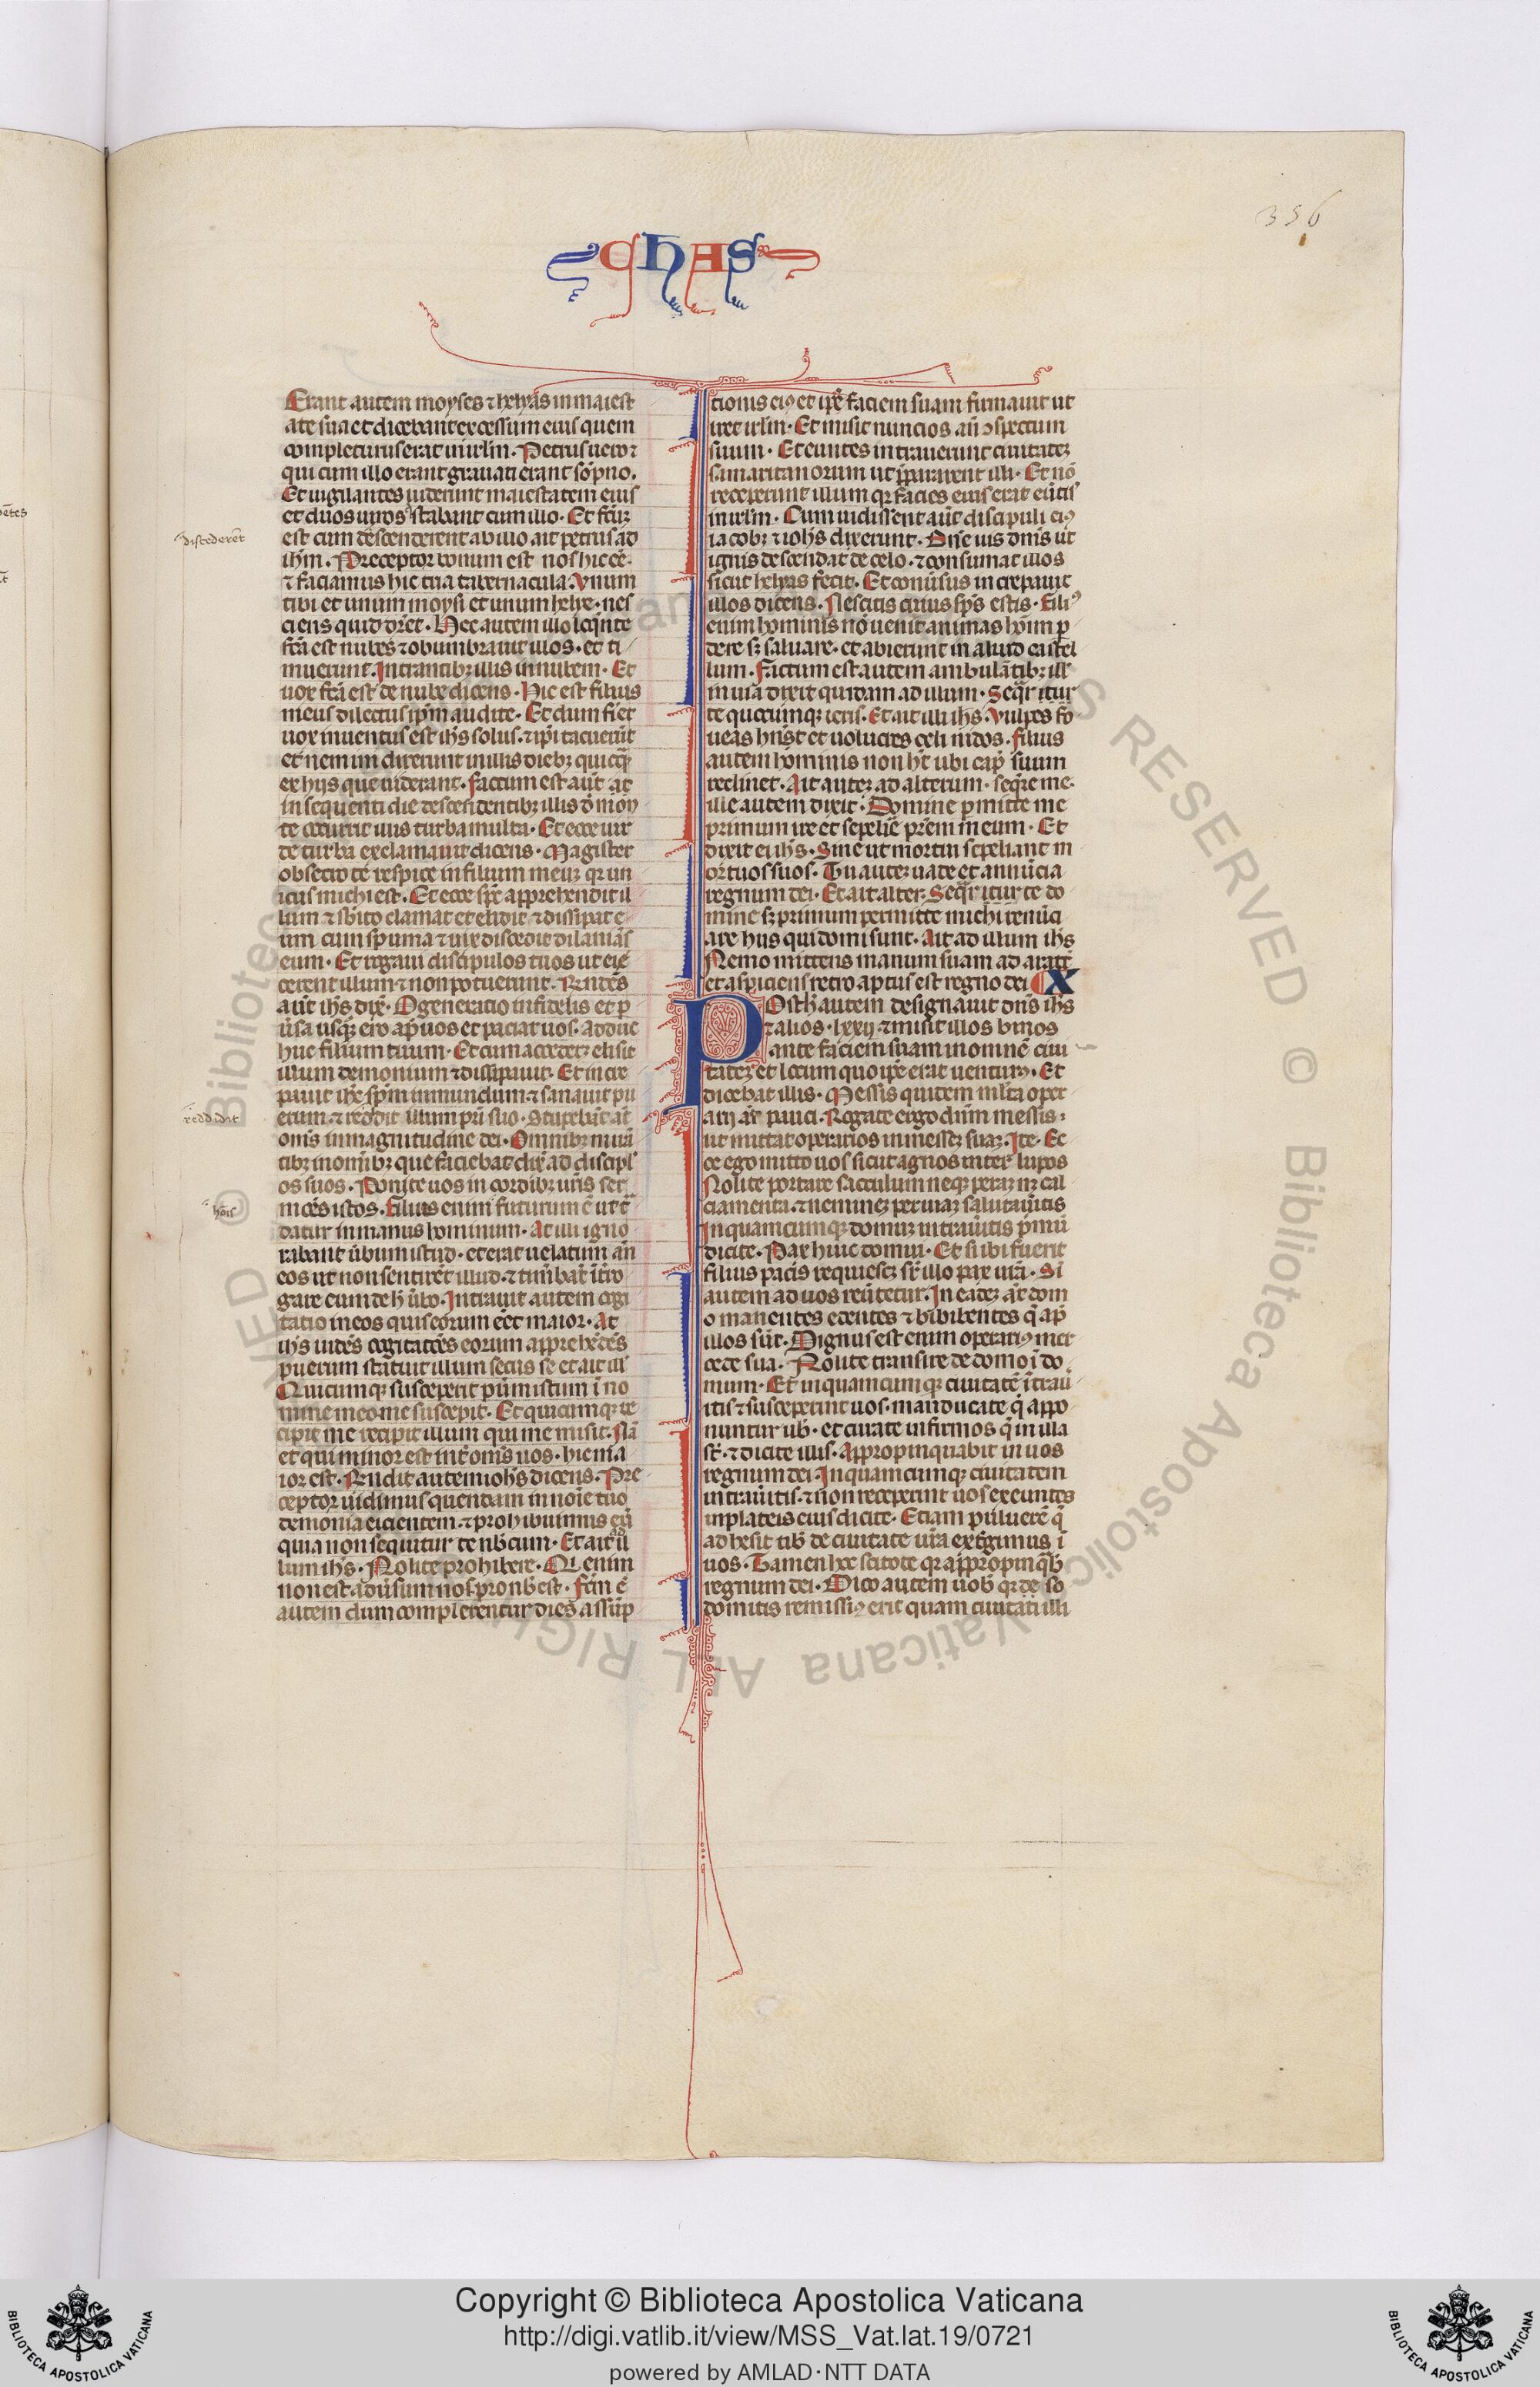 CHAS
356
Erant autem moyses ⁊ helyas in maiest
ate sua et dicebant excessum eius quem
completurus erat in irl̄m. Petrus uero ⁊
qui cum illo erant grauati erant sōpno.
Et uigilantes uiderunt maiestatem eius
et duos uiros stabant cum illo. Et fc̄m
est cum descenderent ab illo ait petrus ad
disce​derēt
ih̄m. Preceptor bonum est nos hic eē.
⁊ faciamus hic tria tabernacula. Vnum
tibi et unum moysi et unum helie. nes
ciens quid dr̄et. Hec autem illo loq̄nte
fc̄a est nubes ⁊ obumbrauit illos. et ti
muerunt. Intrantibꝫ illis in nubem. Et
uox fc̄a est de nube dicens. Hic est filius
meus dilectus ip̄m audite. Et dum fiet
uox inuentus est ih̄s solus. ⁊ ip̄i tacuerūt
et nemini dixerunt in illis diebꝫ quicq̄
ex hijs que uiderant. Factum est aūt at
in sequenti die descendentibꝫ illis d̄ mon
te occurrit illis turba multa. Et ecce uir
de turba exclamauit dicens. Magister
obsecro te respice in filium meuꝫ qr un
icus michi est. Et ecce sp̄c apprehendit il
lum ⁊ sbito clamat et elidit ⁊ dissipat e
um cum spuma ⁊ uix discedit dilaniās
eum. Et rogaui discipulos tuos ut eie
cerent illum ⁊ non potuerunt. Rn̄dēs
aūt ih̄s dix̄. O generatio infidelis et p
ūsa usq̄ ero ap̄ uos et paciar uos. adduc
huc filium tuum. Et cum accederꝫ elisit
illum demonium ⁊ dissipauit. Et incre
pauit ih̄c sp̄m inmundum ⁊ sanauit pu
erum. ⁊ reddit illum pr̄i suo. Stupebāt āt
reddidit
omīs in magnitudine dei. Omnibꝫ mirā
tibꝫ in om̄ibꝫ que faciebat dix̄ ad discipl
os suos. Ponite uos in cordibꝫ ur̄is ser
mōes istos. Filius enim futurum ē ut t̄
hōis
datur in manus hominum. At illi igno
rabant ūbum istud. et erat uelatum an̄
eos ut non sentirēt illud. ⁊ timebāt īt̄ro
gare eum de h̄ ūbo. Intrauit autem cogi
tatio in eos quis eorum eēt maior. At
ih̄s uidēs cogitatōēs eorum apprehēdēs
puerum statuit illum secus se et ait ill
Quicumqꝫ susceperit pūm istum ī no
mine meo me suscepit. Et quicumqꝫ re
cipit me recipit illum qui me misit. Nā
et qui minor est int̄ omīs uos. hic ma
ior est. Rn̄dit autem ioh̄s dicens. Pre
ceptor uidimus quendam in noīe tuo
demonia eicientem. ⁊ prohibuimus eū
quia non sequitur te nb̄cum. Et ait ad il
lum ih̄s. Nolite prohibere. Q̄ enim
non est adūsum nos pro nb̄ est. Fc̄m ē
autem dum complerentur dies assūp
tionis eiꝰ et ip̄e faciem suam firmauit ut
iret irl̄m. Et misit nuncios an̄ ↄspectum
suum. Et euntes intrauerunt ciuitateꝫ
samaritanorum ut p̄pararent illi. Et nō
receperunt illum qr facies eius erat eūtis
in irl̄m. Cum uidissent aūt discipuli eiꝰ
iacobꝫ ⁊ ioh̄s dixerunt. Dn̄e uis dn̄is ut
ignis descendat de celo. ⁊ consumat illos
sicut helyas fecit. Et conūsus increpauit
illos dicens. Nescitis cuius sp̄s estis. Filiꝰ
enim hominis nō uenit animas hōim p
dere sꝫ saluare. et abierunt in aliud castel
lum. Factum est autem ambulātibꝫ ill
in uia dixit quidam ad illum. Seq̄r itur
te quocumqꝫ ieris. Et ait illi ih̄s. Vulpes fo
ueas hn̄t et uolucres celi nidos. filius
autem hominis non ht̄ ubi cap̄ suum
reclinet. Ait auteꝫ ad alterum. seq̄re me.
ille autem dixit. Domine p̄mitte me
primum ire et sepelie pr̄em meum. Et
dixit ei ih̄s. Sine ut mortui sepeliant m
ortuos suos. Tu auteꝫ uade et annūcia
regnum dei. Et ait alter. Seq̄r itur te do
mine sꝫ primum permitte michi renūci
are hiis qui domi sunt. Ait ad illum ih̄s
Nemo mittens manum suam ad aratr̄
et aspiciens retro aptus est regno dei X
Post h̄ autem designauit dn̄s ih̄s
⁊ alios lxxij ⁊ misit illos binos
ante faciem suam in omnē ciui
tateꝫ et locum quo ip̄e erat uenturꝰ. Et
dicebat illis. Messis quidem ml̄ta oper
arij āt pauci. Rogate ergo dn̄m messis
ut mittat operarios in messeꝫ suaꝫ. Ite. Ec
ce ego mitto uos sicut agnos inter lupos
Nolite portare sacculum neqꝫ peraꝫ nꝫ cal
ciamenta. ⁊ nemineꝫ per uiaꝫ salutaūitis
In quamcumqꝫ domuꝫ intraūitis p̄mū
dicite. Pax huic domui. Et si ibi fuerit
filius pacis requiescꝫ sr̄ illo pax ur̄a. Si
autem ad uos reūtetur. In eadeꝫ āt dom
o manentes edentes ⁊ bibibentes q̄ ap̄
illos sūt. Dignus est enim operariꝰ mer
cede sua. Nolite transire de domo ī do
mum. Et in quamcumqꝫ ciuitatē ītraū
itis ⁊ susceperint uos. manducate q̄ appo
nuntur ub̄. et curate infirmos q̄ in illa
st̄. ⁊ dicite illis. Appropinquabit in uos
regnum dei. In quamcumqꝫ ciuitatem
intraūitis. ⁊ non receperint uos exeuntes
in plateis eius dicite. Etiam puluerē q̄
adhesit nb̄ de ciuitate ur̄a ext̄gimus ī
uos. Tamen hoc scitote qr appropinq̄b
regnum dei. Dico autem uob̄ qr de so
domitis remissiꝰ erit quam ciuitati illi
© Biblioteca Apostolica Vaticana ALL RIGHTS RESERVED
Copyright © Biblioteca Apostolica Vaticana
http://digi.vatlib.it/view/MSS_Vat.lat.19/0721
powered by AMLAD·NTT DATA
BIBLIOTECA APOSTOLICA VATICANA
BIBLIOTECA APOSTOLICA VATICANA